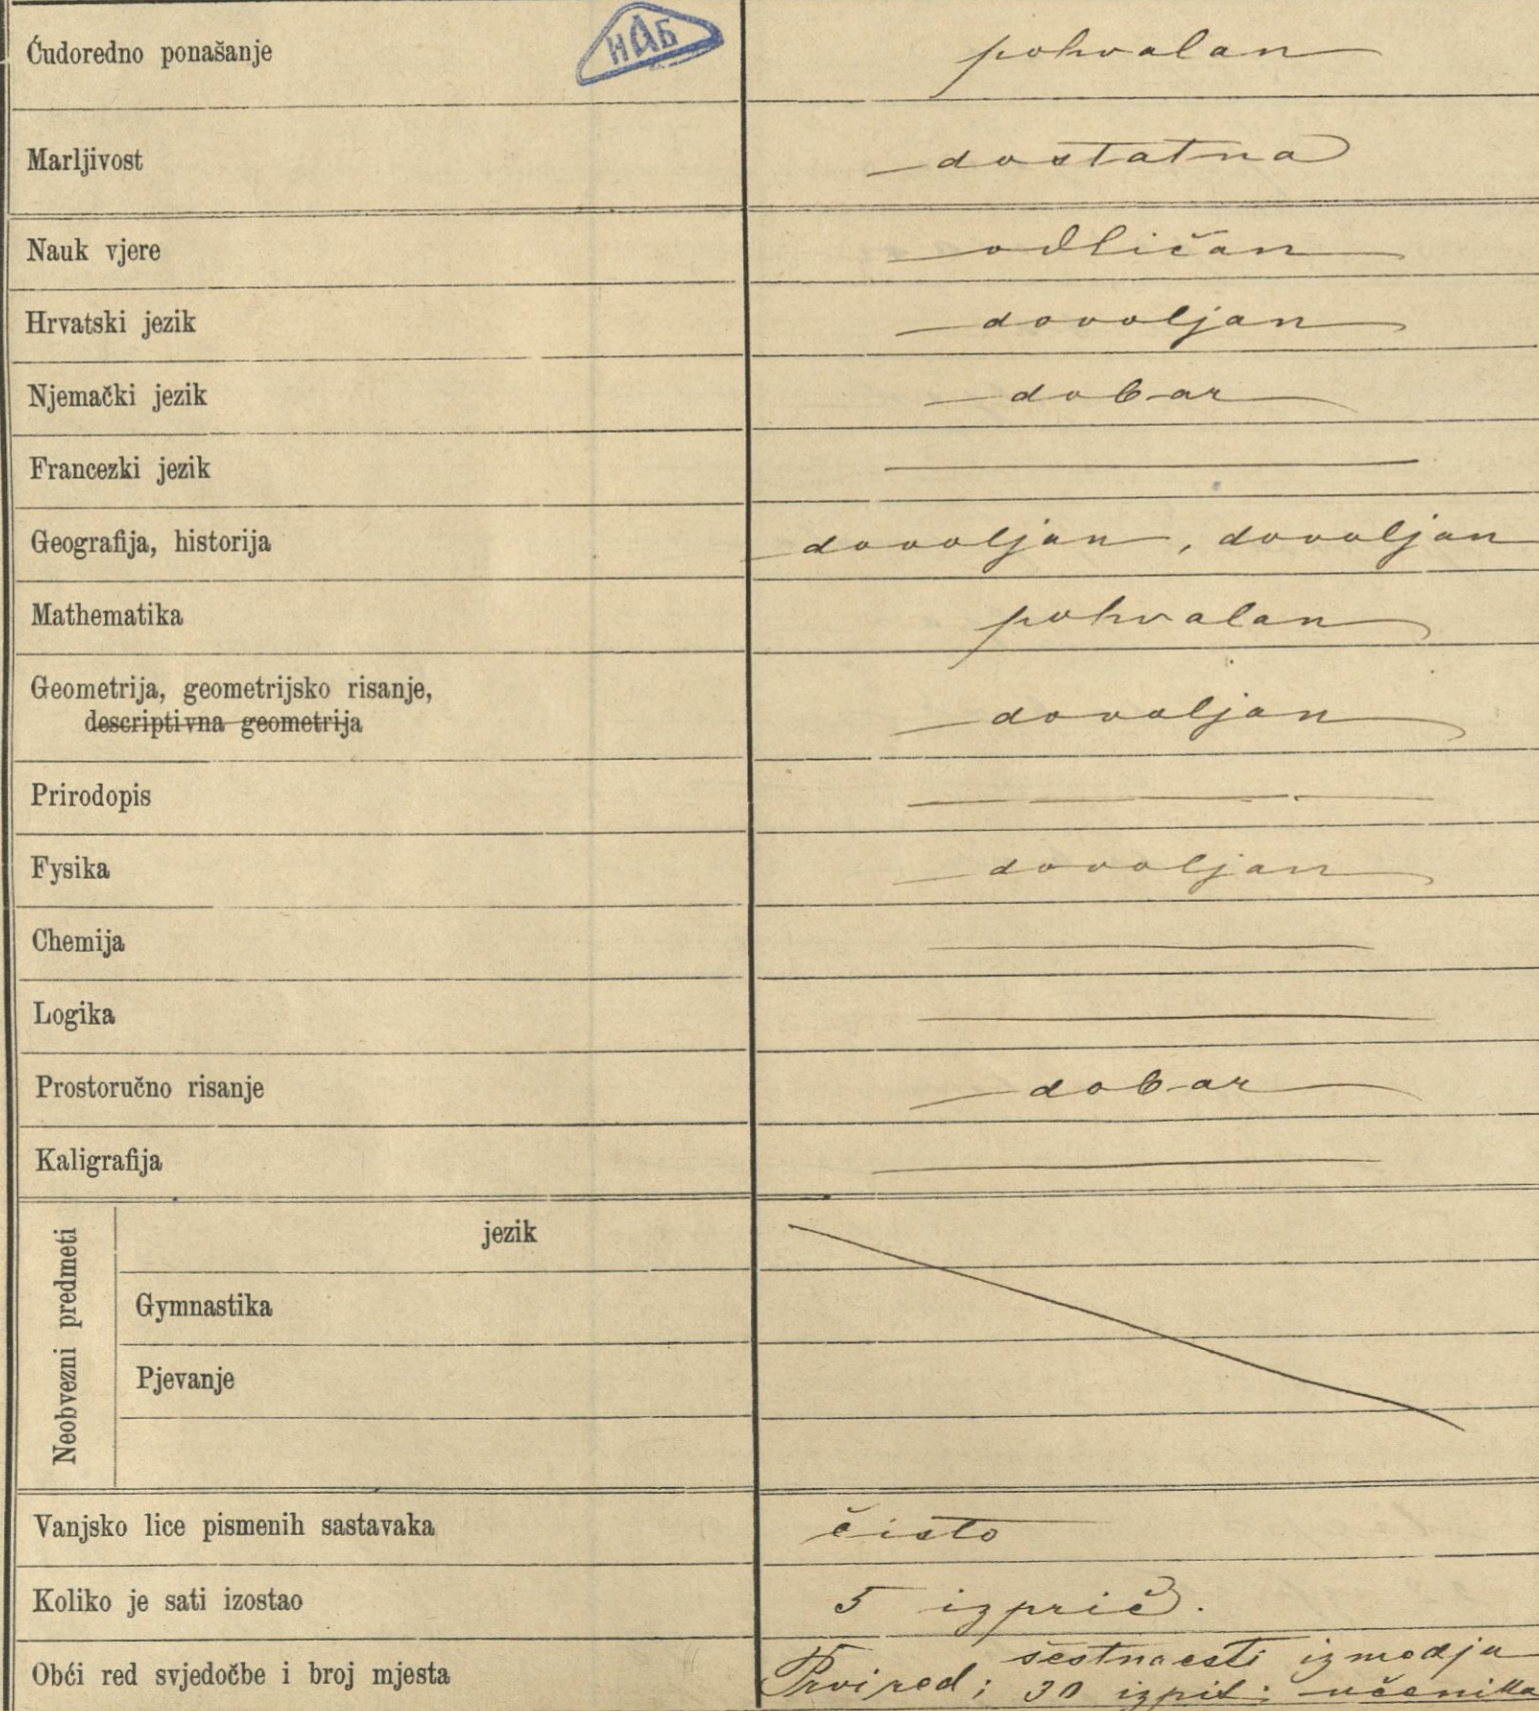 Ćudoredno ponašanje НАБ pohvalan
Marljivost dostatna
Nauk vjere odličan
Hrvatski jezik dovoljan
Njemački jezik dobar
Francezki jezik
Geografija, historija dovoljan, dovoljan
Mathematika pohvalan
Geometrija, geometrijsko risanje,
descriptivna geometrija dovoljan
Prirodopis
Fysika dovoljan
Chemija
Logika
Prostoručno risanje dobar
Kaligrafija
Neobvezni predmeti
jezik
Gymnastika
Pjevanje
Vanjsko lice pismenih sastavaka čisto
Koliko je sati izostao 5 izprič.
Obći red svjedočbe i broj mjesta Prvi red; šestnaesti izmedju
30 izpit: učenika